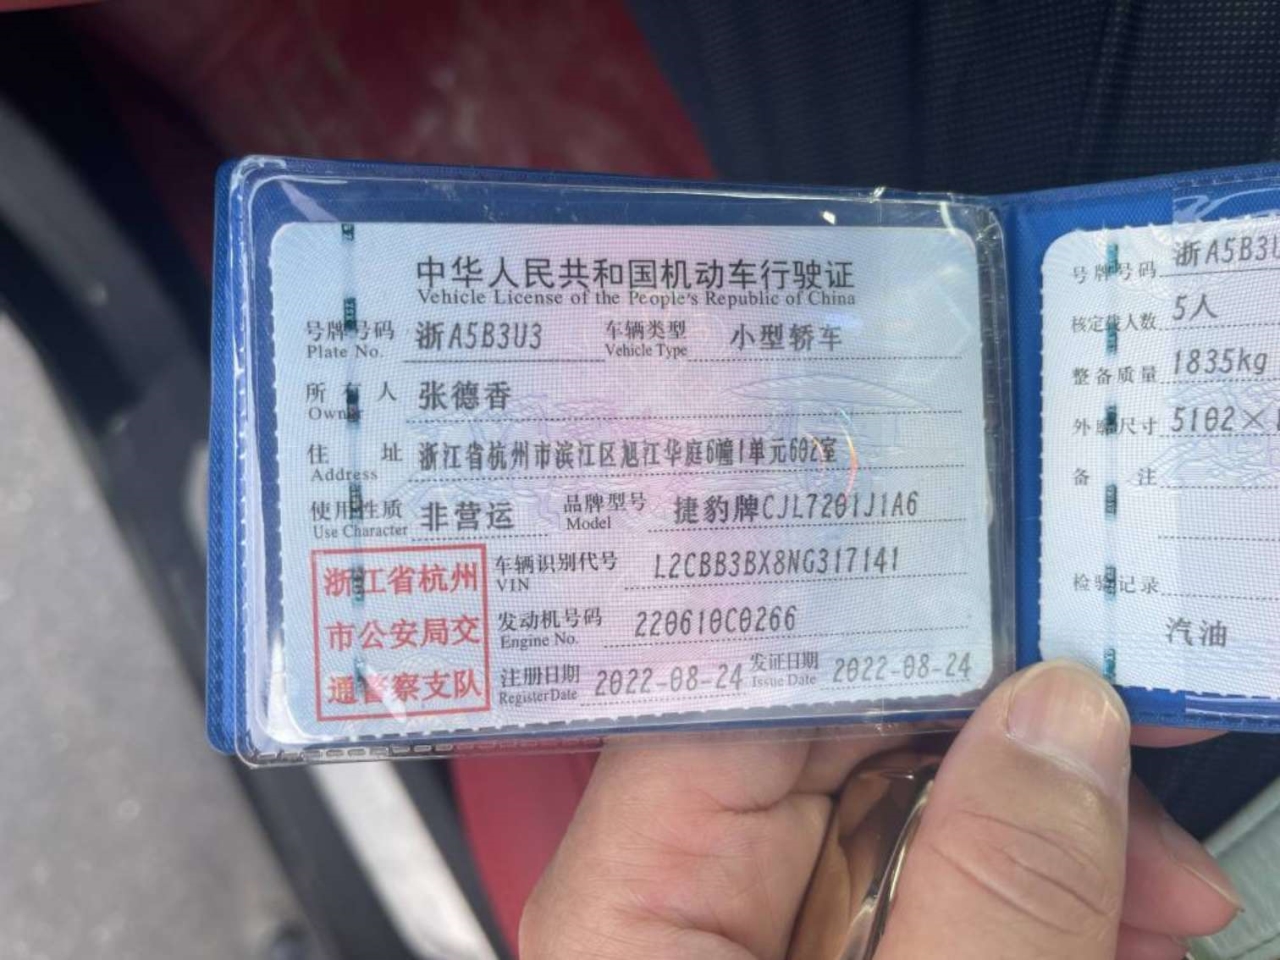 中华人民共和国机动车行驶证
Vehicle License of the People's Republic of China
号牌号码 浙A5B3U3 车辆类型 小型轿车
Plate No. Vehicle Type
所有人 张德香
Owner
住址 浙江省杭州市滨江区旭江华庭6幢1单元602室
Address
使用性质 非营运 品牌型号 捷豹牌CJL7201J1A6
Use Character Model
浙江省杭州
市公安局交
通警察支队
车辆识别代号 L2CBB3BX8NG317141
VIN
发动机号码 220610C0266
Engine No.
注册日期 2022-08-24 发证日期 2022-08-24
Register Date Issue Date
号牌号码 浙A5B3U
核定载人数 5人
整备质量 1835kg
外廓尺寸 5102×
备注
检验记录
汽油